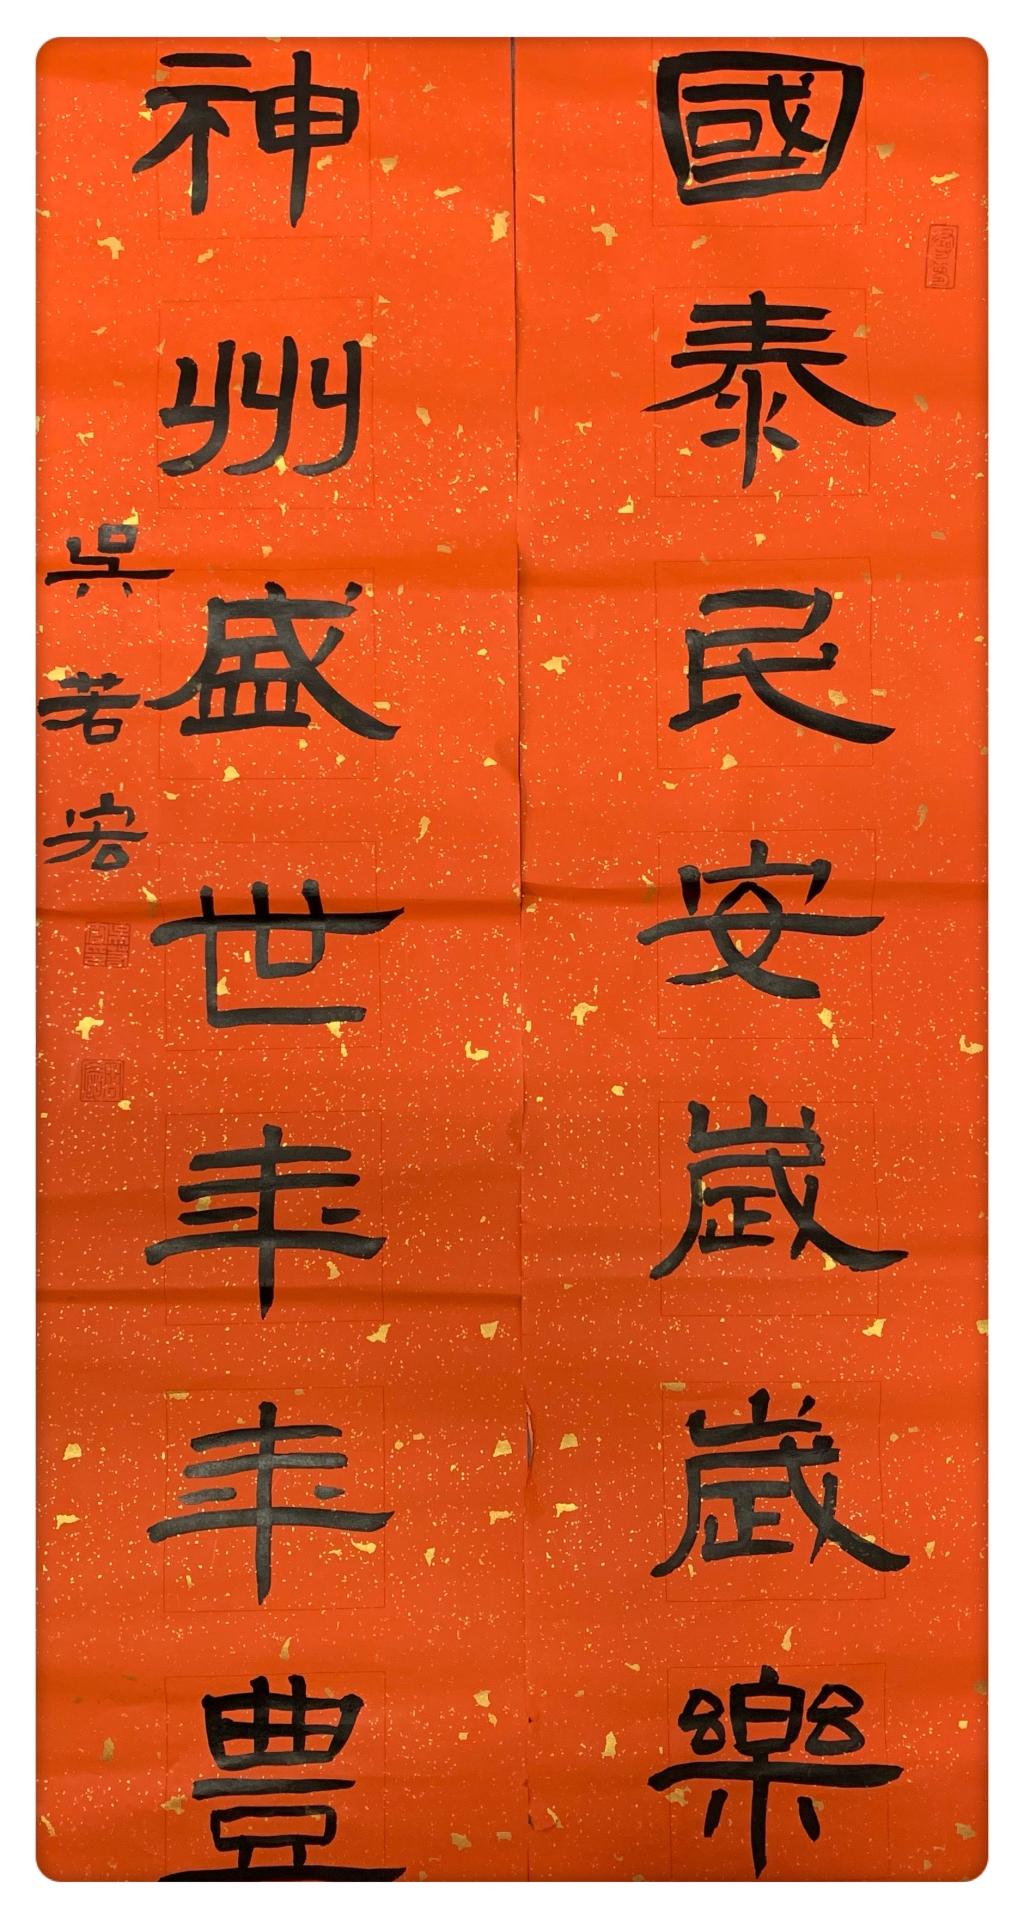 國泰民安歲歲樂
神州盛世年年豐
吳若宏